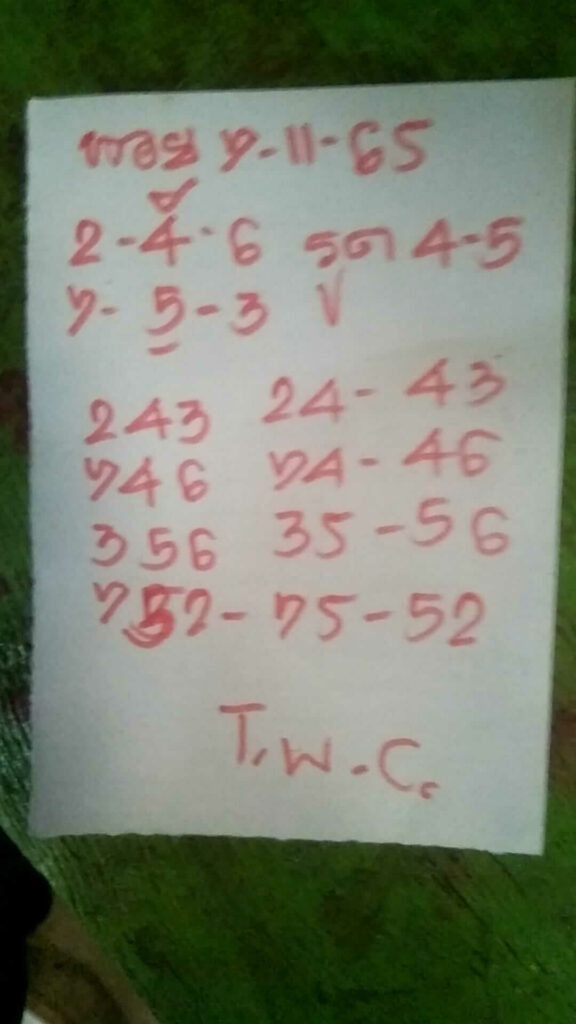 ฮานอย 7-11-65
2-4-6 รูด 4-5
7-5-3 V
243 24-43
746 74-46
356 35-56
752-75-52
T.W.C.